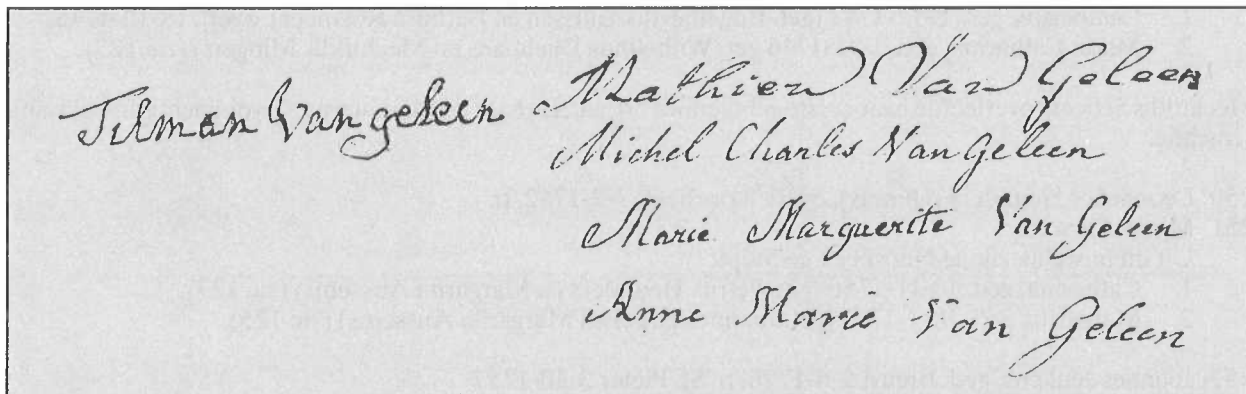 Tilman Vangeleen
Mathieu Van Geleen
Michel Charles Van Geleen
Marie Marguerite Van Geleen
Anne Marie Van Geleen